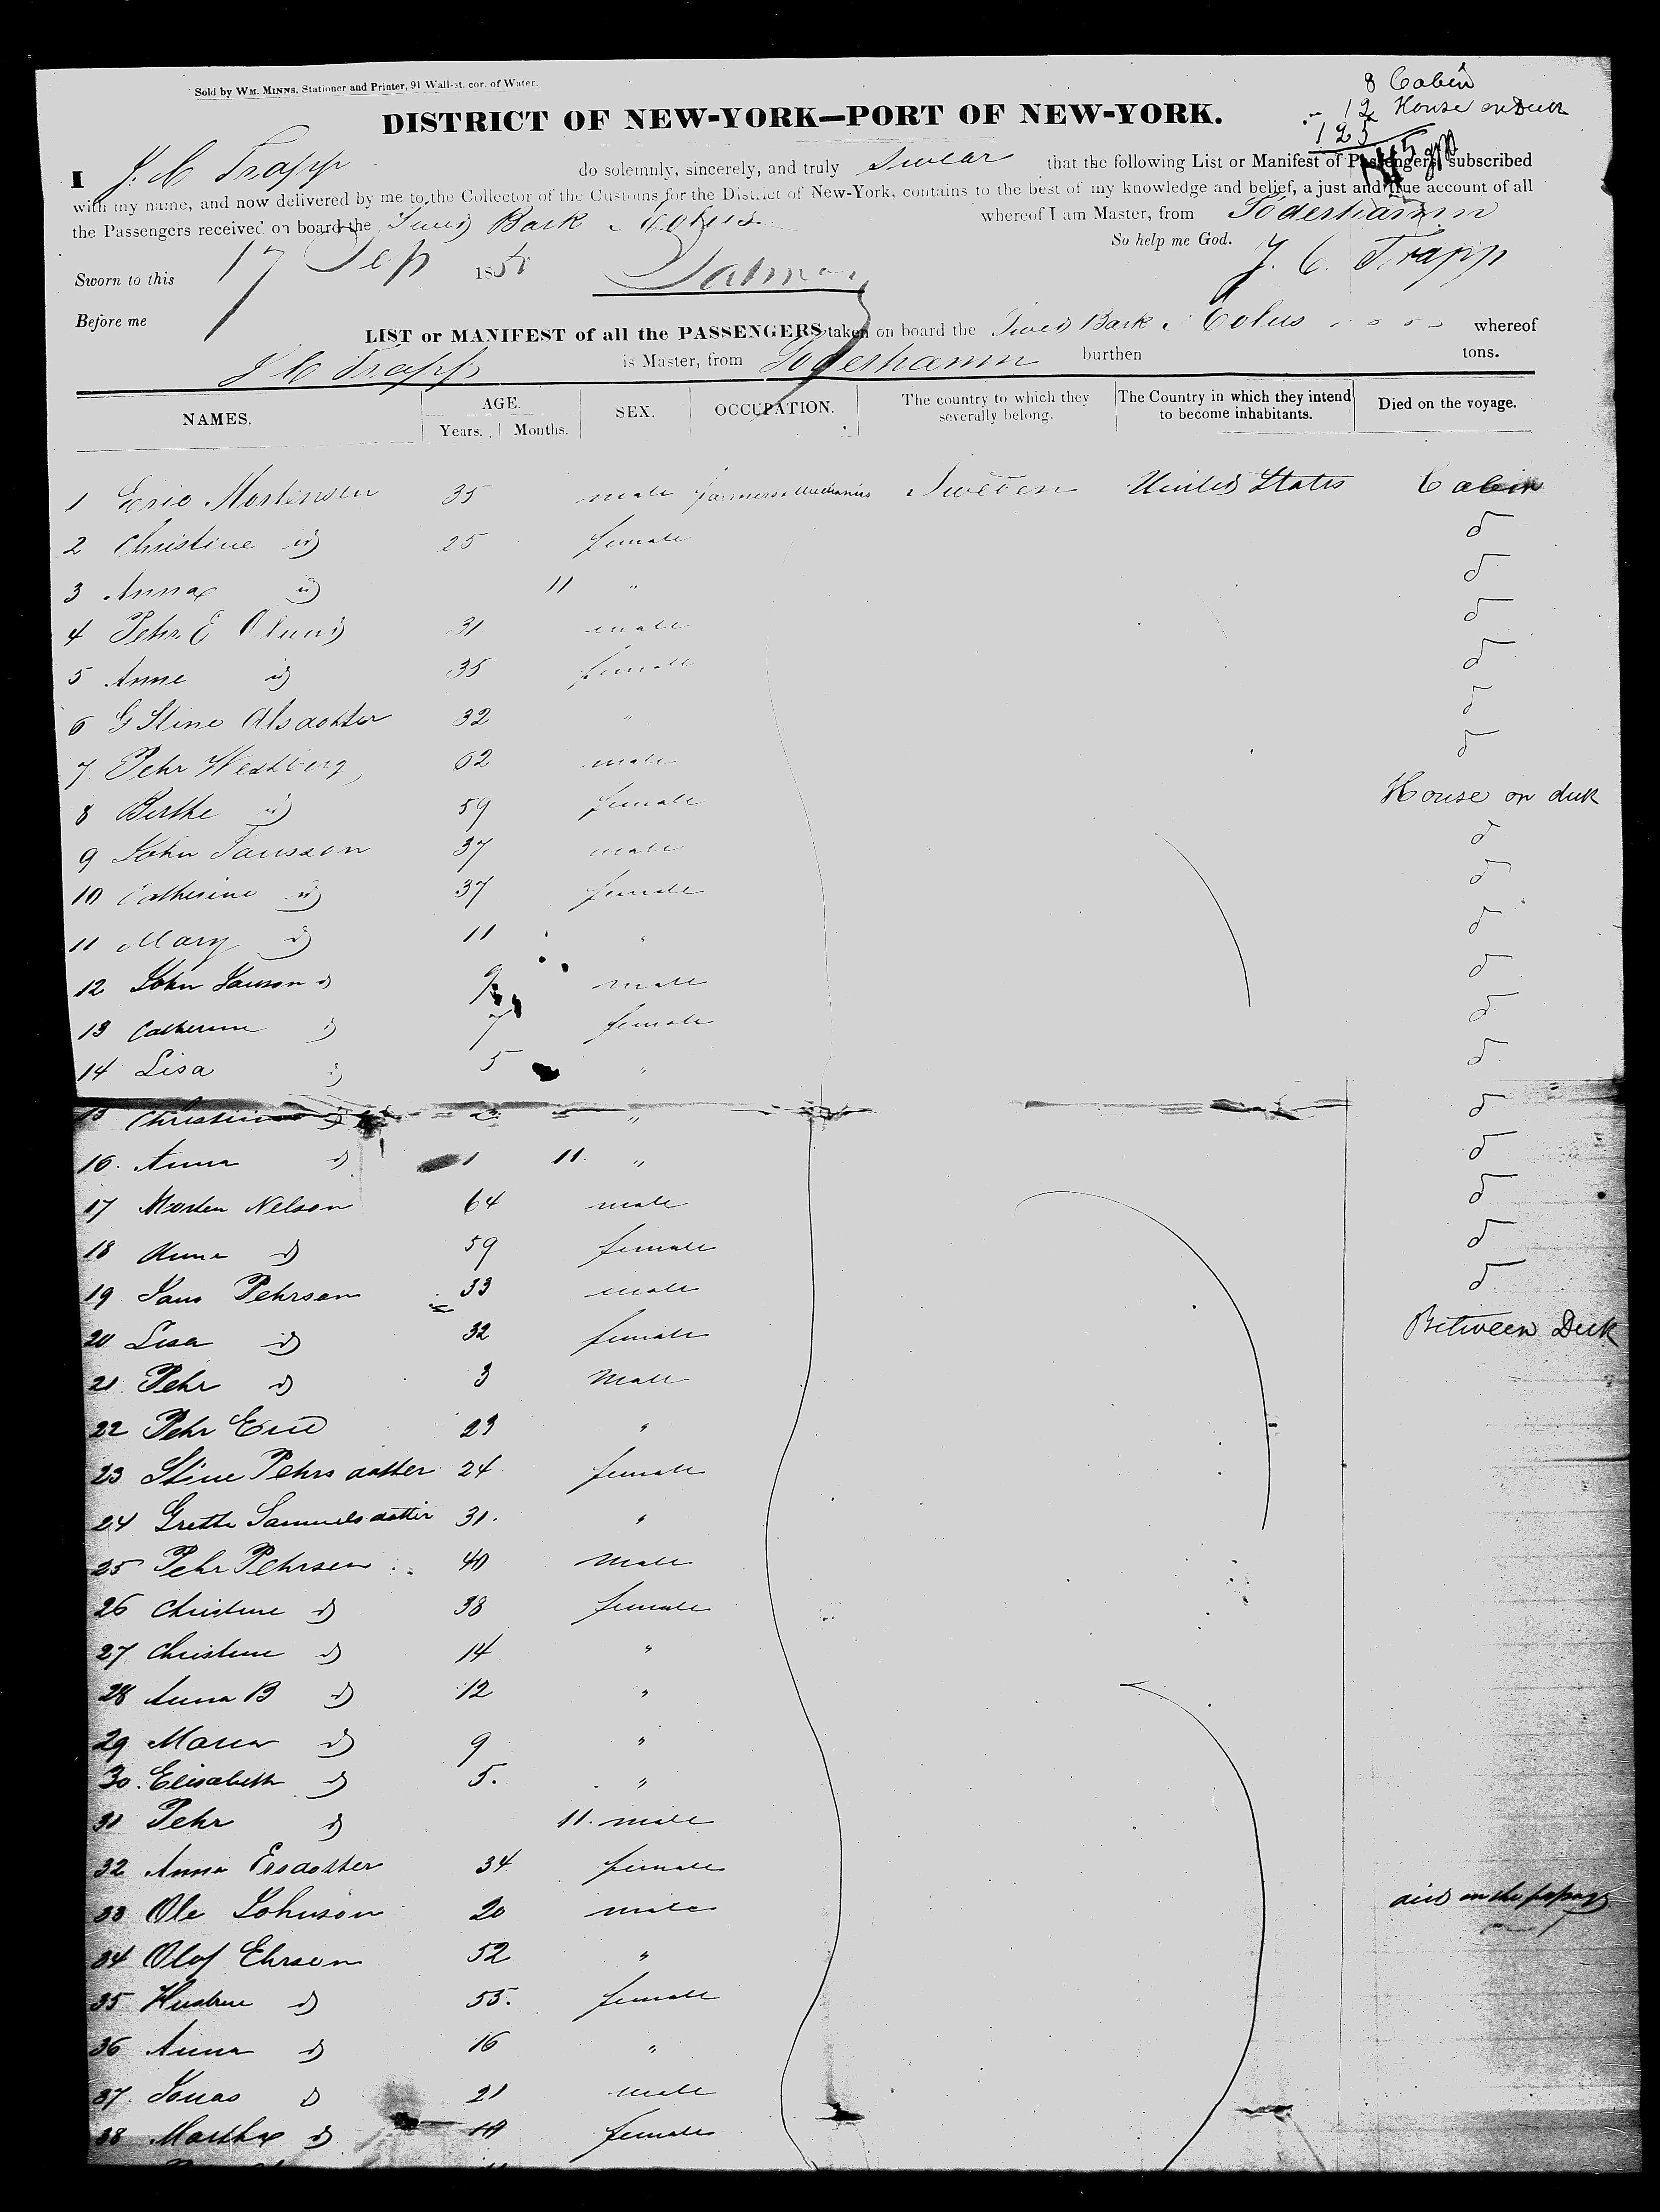 Sold by WM. MINNS, Stationer and Printer, 91 Wall-st. cor. of Water.
8 Cabin
12 House on Deck
125
145
DISTRICT OF NEW-YORK—PORT OF NEW-YORK.
I J. C. Trapp do solemnly, sincerely, and truly swear that the following List or Manifest of Passengers, subscribed
with my name, and now delivered by me to the Collector of the Customs for the District of New-York, contains to the best of my knowledge and belief, a just and true account of all
the Passengers received on board the Swed Bark whereof I am Master, from Söderhamn
So help me God.
Sworn to this 17 Sep 185 J. C. Trapp
Before me
LIST or MANIFEST of all the PASSENGERS taken on board the Swed Bark whereof
J C Trapp is Master, from Söderhamn burthen tons.
NAMES. AGE. Years. Months. SEX. OCCUPATION. The country to which they severally belong. The Country in which they intend to become inhabitants. Died on the voyage.
1 Eric Mortensen 35 male farmers & mechanics Sweden United States Cabin
2 Christine id 25 female do
3 Anna id 11 " do
4 Pehr E 31 male do
5 Anne id 35 female do
6 G Stine Olsdotter 32 " do
7 Pehr Westberg 62 male do
8 Berthe id 59 female House on deck
9 John Jansson 37 male do
10 Catherine id 37 female do
11 Mary id 11 " do
12 John Janson id 9 male do
13 Catherine id 7 female do
14 Lisa id 5 " do
15 Christine id " do
16. Anna id 1 11. " do
17 Morten Nelson 64 male do
18 Anna id 59 female do
19 Jans Pehrsen 33 male do
20 Lisa id 32 female Between Deck
21 Pehr id 3 Male
22 Pehr Eric 23 "
23 Stine Pehrsdotter 24 female
24 Grette Samuelsdotter 31. "
25 Pehr Pehrsen 40 Male
26 Christine id 38 female
27 Christine id 14 "
28 Anna B id 12 "
29 Maria id 9 "
30. Elisabeth id 5. "
31 Pehr id 11. male
32 Anna Ersdotter 34 female
33 Ole Johnson 20 male died on the passage
34 Olof Ehrson 52 "
35 Hustru id 55. female
36 Anna id 16 "
37. Jonas id 21 male
38 Martha id 14 female